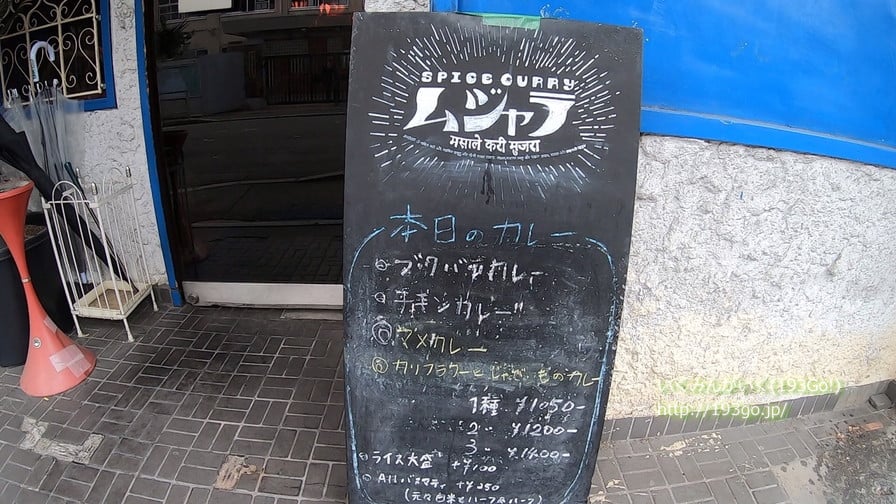 SPICE CURRY
ムジャラ
मसाले करी मुजरा
本日のカレー
ブタバラカレー
チキンカレー
マメカレー
カリフラワーとじゃがいものカレー
1種 ¥1050-
2〃 ¥1200-
3〃 ¥1400-
ライス大盛 +¥100
Allバスマティ +¥250
(元々白米とハーフ&ハーフ)
(193Go!)
http://193go.jp/